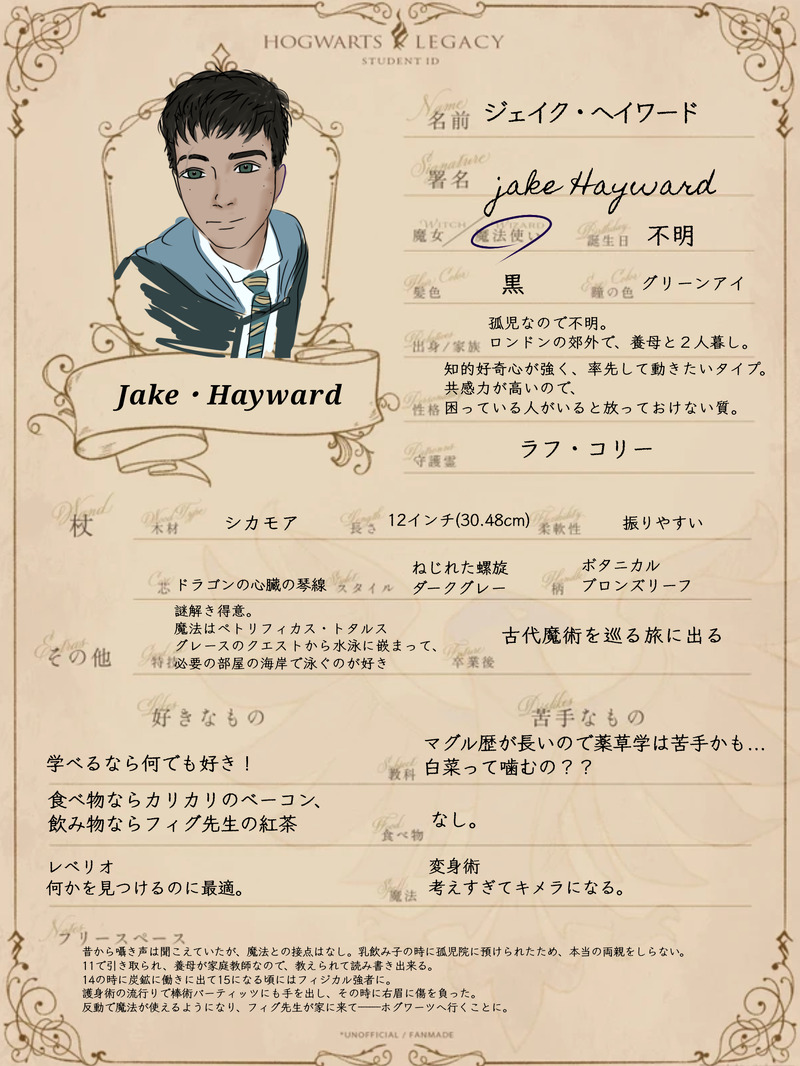 HOGWARTS LEGACY
STUDENT ID
Name
名前 ジェイク・ヘイワード
Signature
署名 jake Hayward
WITCH WIZARD Birthday
魔女/魔法使い 誕生日 不明
Hair Color Eye Color
髪色 黒 瞳の色 グリーンアイ
孤児なので不明。
出身/家族 ロンドンの郊外で、養母と2人暮し。
Jake・Hayward
知的好奇心が強く、率先して動きたいタイプ。
共感力が高いので、
性格 困っている人がいると放っておけない質。
Patronus
守護霊 ラフ・コリー
Wand
杖
Wood Type Length Flexibility
木材 シカモア 長さ 12インチ(30.48cm) 柔軟性 振りやすい
芯 ドラゴンの心臓の琴線
Style
スタイル ねじれた螺旋
ダークグレー
Handle
柄 ボタニカル
ブロンズリーフ
Extras
その他
謎解き得意。
魔法はペトリフィカス・トタルス
グレースのクエストから水泳に嵌まって、
特技 必要の部屋の海岸で泳ぐのが好き
Future
卒業後 古代魔術を巡る旅に出る
Likes Dislikes
好きなもの 苦手なもの
学べるなら何でも好き！
Subject
教科
マグル歴が長いので薬草学は苦手かも…
白菜って噛むの？？
食べ物ならカリカリのベーコン、
飲み物ならフィグ先生の紅茶
Food
食べ物 なし。
レベリオ
何かを見つけるのに最適。
Spell
魔法
変身術
考えすぎてキメラになる。
Notes
フリースペース
昔から囁き声は聞こえていたが、魔法との接点はなし。乳飲み子の時に孤児院に預けられたため、本当の両親をしらない。
11で引き取られ、養母が家庭教師なので、教えられて読み書き出来る。
14の時に炭鉱に働きに出て15になる頃にはフィジカル強者に。
護身術の流行りで棒術バーティッツにも手を出し、その時に右眉に傷を負った。
反動で魔法が使えるようになり、フィグ先生が家に来て――ホグワーツへ行くことに。
*UNOFFICIAL / FANMADE